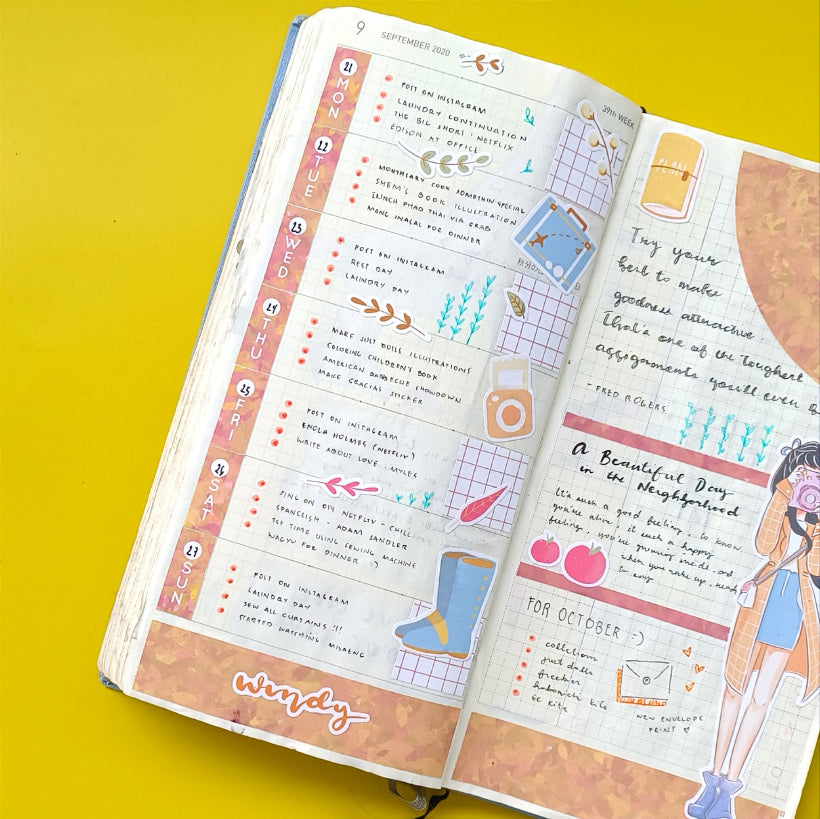 9 SEPTEMBER 2020
39th WEEK
21 MON
POST ON INSTAGRAM
LAUNDRY CONTINUATION
THE BIG SHORT : NETFLIX
EDISON AT OFFICE
22 TUE
MONTHSARY COOK SOMETHIN SPECIAL
SHEM'S BOOK ILLUSTRATION
LUNCH PHAD THAI VIA GRAB
MANG INASAL FOR DINNER
23 WED
POST ON INSTAGRAM
REST DAY
LAUNDRY DAY
24 THU
MAKE JUST DOLLS ILLUSTRATIONS
COLORING CHILDREN'S BOOK
AMERICAN BARBECUE SHOWDOWN
MAKE GRACIAS STICKER
25 FRI
POST ON INSTAGRAM
ENOLA HOLMES (NETFLIX)
WRITE ABOUT LOVE : MYLES
26 SAT
NETFLIX - CHILL
SPANGLISH - ADAM SANDLER
1ST TIME USING SEWING MACHINE
WAGYU FOR DINNER :)
27 SUN
POST ON INSTAGRAM
LAUNDRY DAY
SEW ALL CURTAINS !!!
STARTED WATCHING MISAENG
windy
Try your
best to make
goodness attractive.
That's one of the toughest
assignments you'll ever
- FRED ROGERS
A Beautiful Day
in the Neighborhood
It's such a good feeling, to know
you're alive, it such a happy
feeling, you're growing inside. and
when you wake up, ready
to say
FOR OCTOBER :-)
collection
just dolls
freebies
hobonichi kits
ec kits
NEW ENVELOPE
PRINT